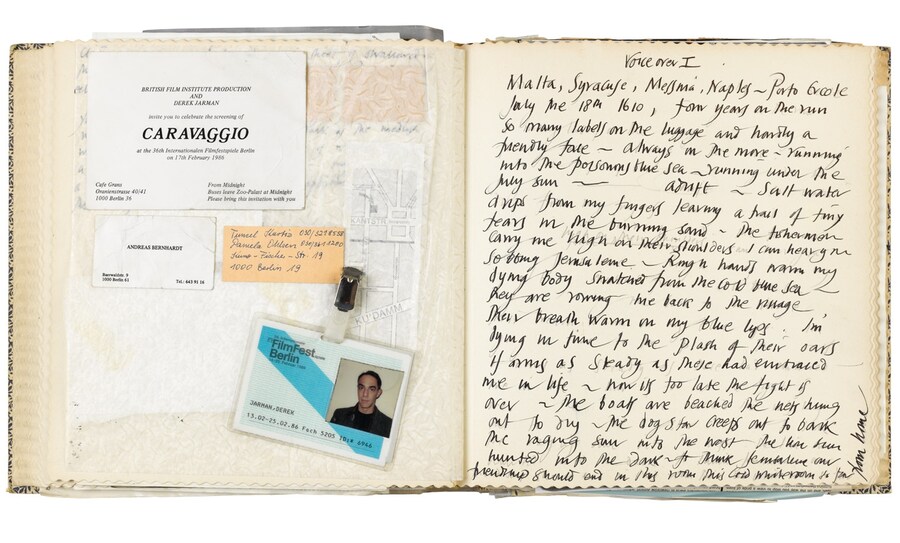 BRITISH FILM INSTITUTE PRODUCTION
AND
DEREK JARMAN
invite you to celebrate the screening of
CARAVAGGIO
at the 36th Internationalen Filmfestspiele Berlin
on 17th February 1986
Cafe Grans
Oranienstrasse 40/41
1000 Berlin 36
From Midnight
Buses leave Zoo-Palast at Midnight
Please bring this invitation with you
ANDREAS BERNHARDT
Baerwaldstr. 9
1000 Berlin 61
Tel: 693 91 16
Daniela
Str. 19
1000 Berlin 19
KANTSTR
KU'DAMM
FilmFest
Berlin
JARMAN, DEREK
15.02-25.02.86 Fach 5205 IDce 6946
Voice over I
Malta, Syracuse, Messina, Naples ~ Porto Ercole
July the 18th 1610, four years on the run
so many labels on the luggage and hardly a
friendly face ~ always on the move ~ running
into the poisonous blue sea ~ running under the
July sun — adrift ~ salt water
drips from my fingers leaving a trail of tiny
tears in the burning sand ~ the fishermen
carry me high on their shoulders I can hear you
sobbing Jerusaleme ~ Rough hands warm my
dying body snatched from the cold blue sea ~
they are rowing me back to the village
their breath warm on my blue lips. I'm
dying in time to the plash of their oars
if arms as steady as these had embraced
me in life ~ now its too late the fight is
over ~ the boats are beached the nets hung
out to dry ~ the dog star creeps out to bark
the raging sun into the west the lion sun
hunted into the dark ~ to think Jerusaleme our
friendship should end in this room this cold white room so far
from home